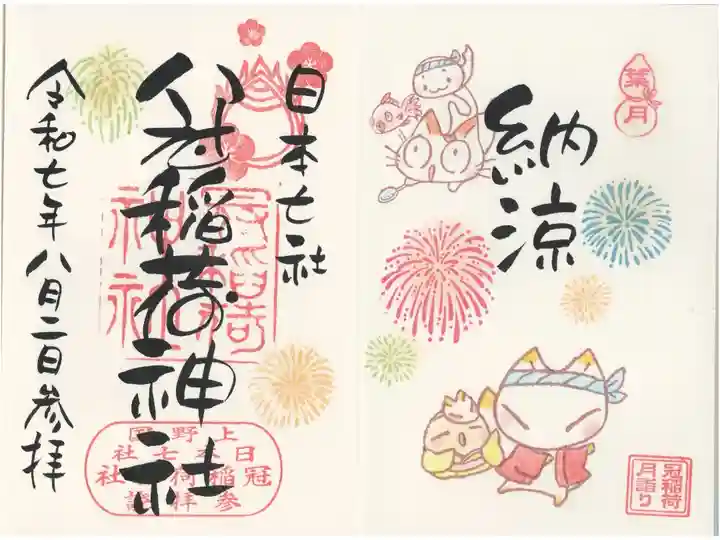 葉月
納涼
冠稲荷
月詣り
日本七社
冠稲荷神社
冠稲荷
神社
上野国
日本七社
冠稲荷社
参拝證
令和七年八月二日参拝